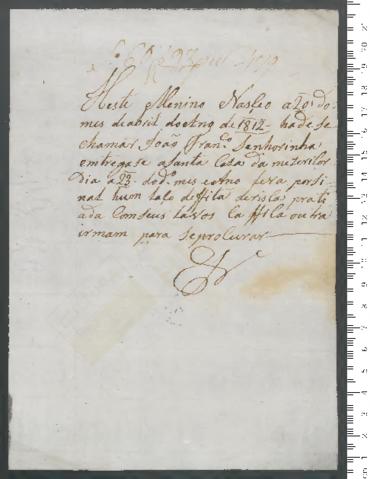 Heste Menino Nasseo a 20 do
mes de abril do Ano de 1812 hade se
chamar João Fran.co Senhorinha
entregase a Santa Caza da mezericor
Dia a 23 do d.o mes e Ano leva por si
nal hum lalo de fita de rista prati
ada Com seus lavos La ffila outra
irmam para se procurar